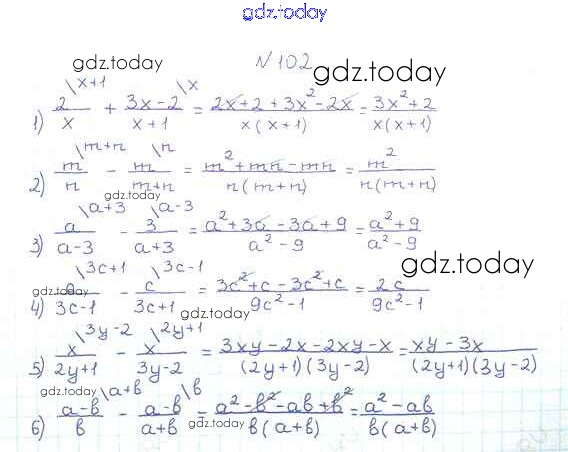 gdz.today
gdz.today
N 102
gdz.today
1) 2/x \x+1 + (3x-2)/(x+1) \x = (2x+2+3x²-2x)/(x(x+1)) = (3x²+2)/(x(x+1))
gdz.today
2) m/n \m+n - m/(m+n) \n = (m²+mn-mn)/(n(m+n)) = m²/(n(m+n))
gdz.today
3) a/(a-3) \a+3 - 3/(a+3) \a-3 = (a²+3a-3a+9)/(a²-9) = (a²+9)/(a²-9)
gdz.today
gdz.today
4) c/(3c-1) \3c+1 - c/(3c+1) \3c-1 = (3c²+c-3c²+c)/(9c²-1) = 2c/(9c²-1)
gdz.today
5) x/(2y+1) \3y-2 - x/(3y-2) \2y+1 = (3xy-2x-2xy-x)/((2y+1)(3y-2)) = (xy-3x)/((2y+1)(3y-2))
gdz.today
6) (a-b)/b \a+b - (a-b)/(a+b) \b = (a²-b²-ab+b²)/(b(a+b)) = (a²-ab)/(b(a+b))
gdz.today